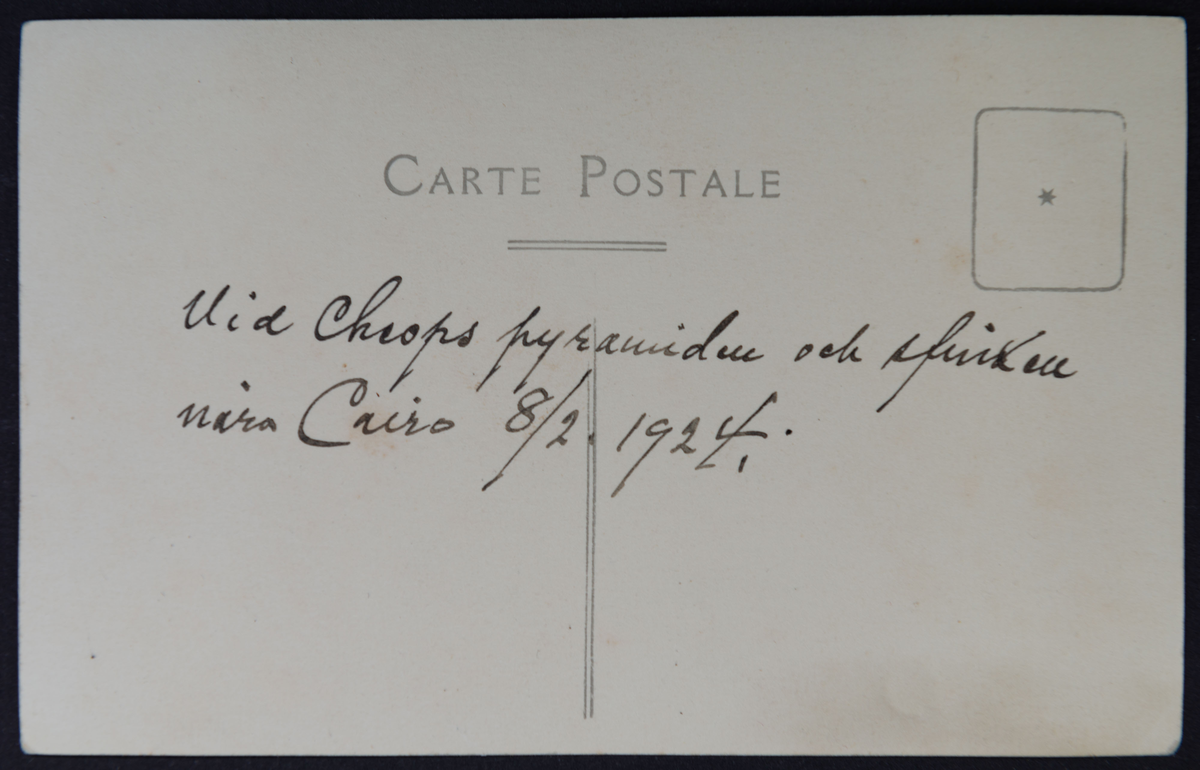 CARTE POSTALE
Vid Cheops pyramiden och sfinxen
nära Cairo 8/2 1924.